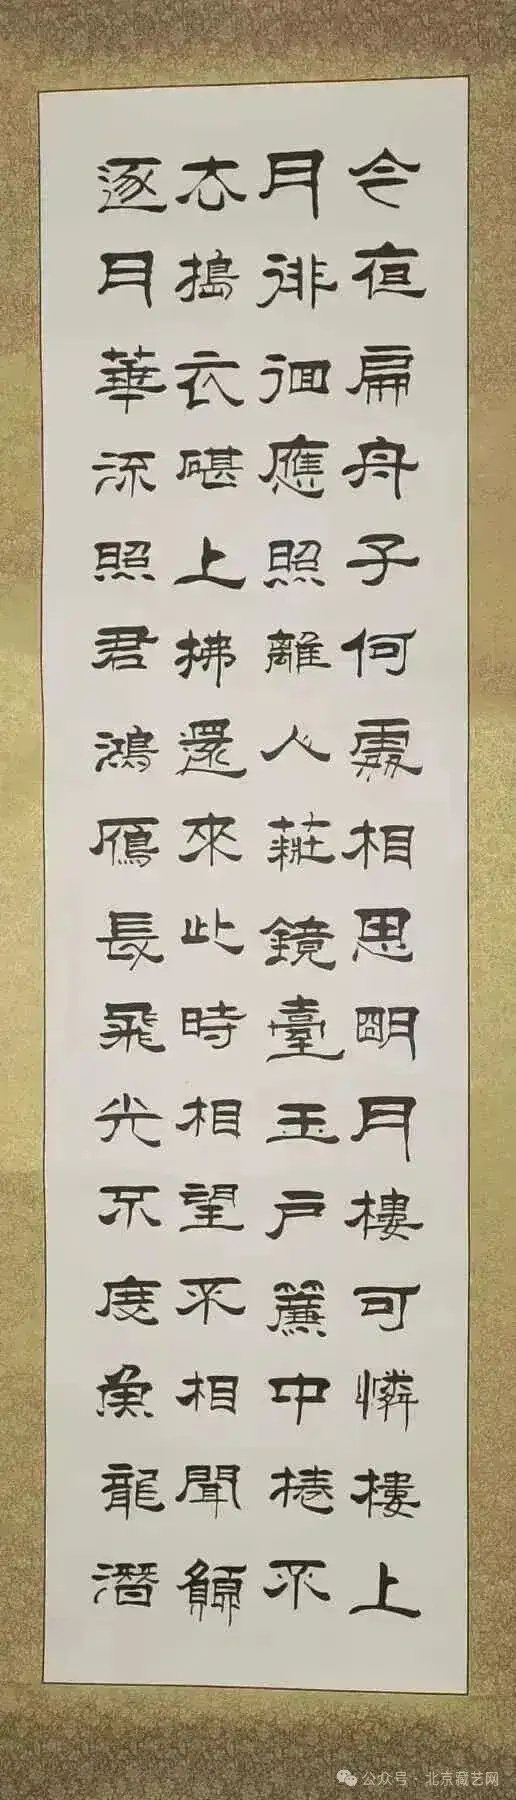 今夜扁舟子何處相思明月樓可憐樓上
月徘徊應照離人莊鏡臺玉戶簾中捲不
去搗衣碪上拂還來此時相望不相聞願
逐月華流照君鴻鴈長飛光不度魚龍潛
公众号·北京藏艺网